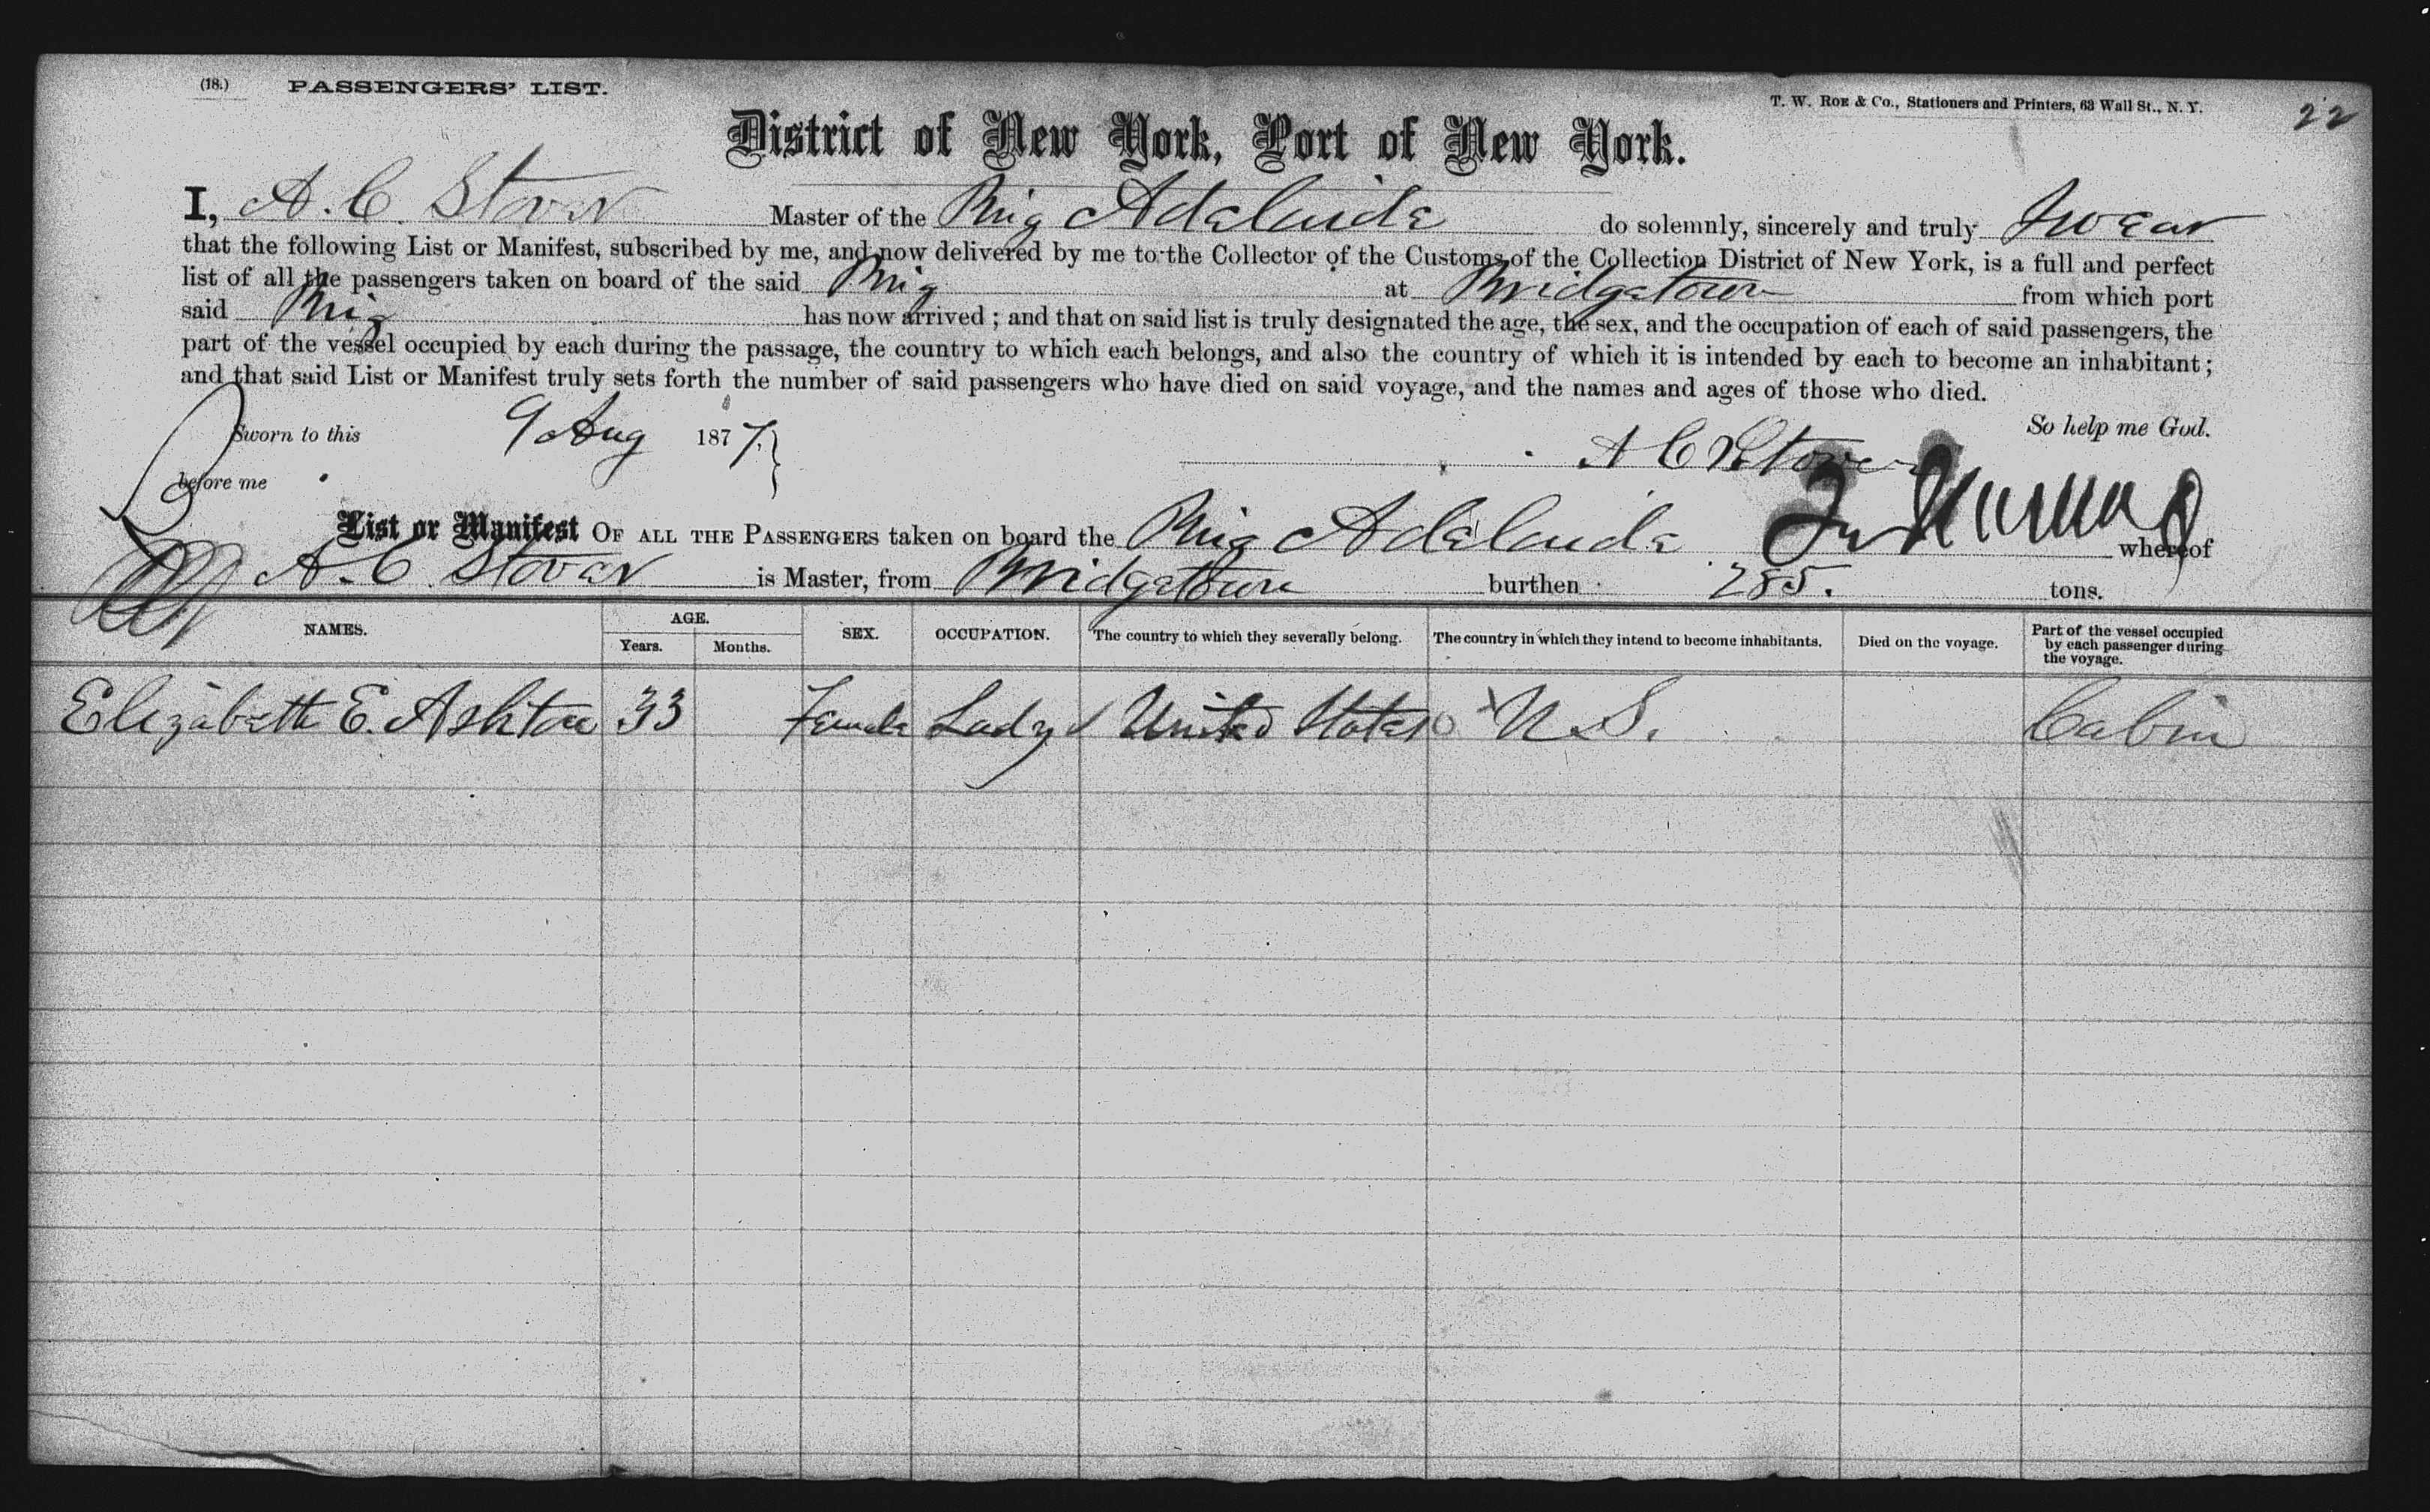 (18.) PASSENGERS' LIST.
T. W. Roe & Co., Stationers and Printers, 63 Wall St., N. Y.
22
District of New York, Port of New York.
I, A. C. Stover Master of the Brig Adelaide do solemnly, sincerely and truly Swear
that the following List or Manifest, subscribed by me, and now delivered by me to the Collector of the Customs of the Collection District of New York, is a full and perfect
list of all the passengers taken on board of the said Brig at Bridgetown from which port
said Brig has now arrived ; and that on said list is truly designated the age, the sex, and the occupation of each of said passengers, the
part of the vessel occupied by each during the passage, the country to which each belongs, and also the country of which it is intended by each to become an inhabitant ;
and that said List or Manifest truly sets forth the number of said passengers who have died on said voyage, and the names and ages of those who died.
Sworn to this 9 Aug 1877. So help me God.
before me A C Stover
List or Manifest OF ALL THE PASSENGERS taken on board the Brig Adelaide whereof
A. C. Stover is Master, from Bridgetown burthen 285. tons.
NAMES. AGE. Years. Months. SEX. OCCUPATION. The country to which they severally belong. The country in which they intend to become inhabitants. Died on the voyage. Part of the vessel occupied by each passenger during the voyage.
Elizabeth E. Ashton 33 Female Lady United States U.S. Cabin